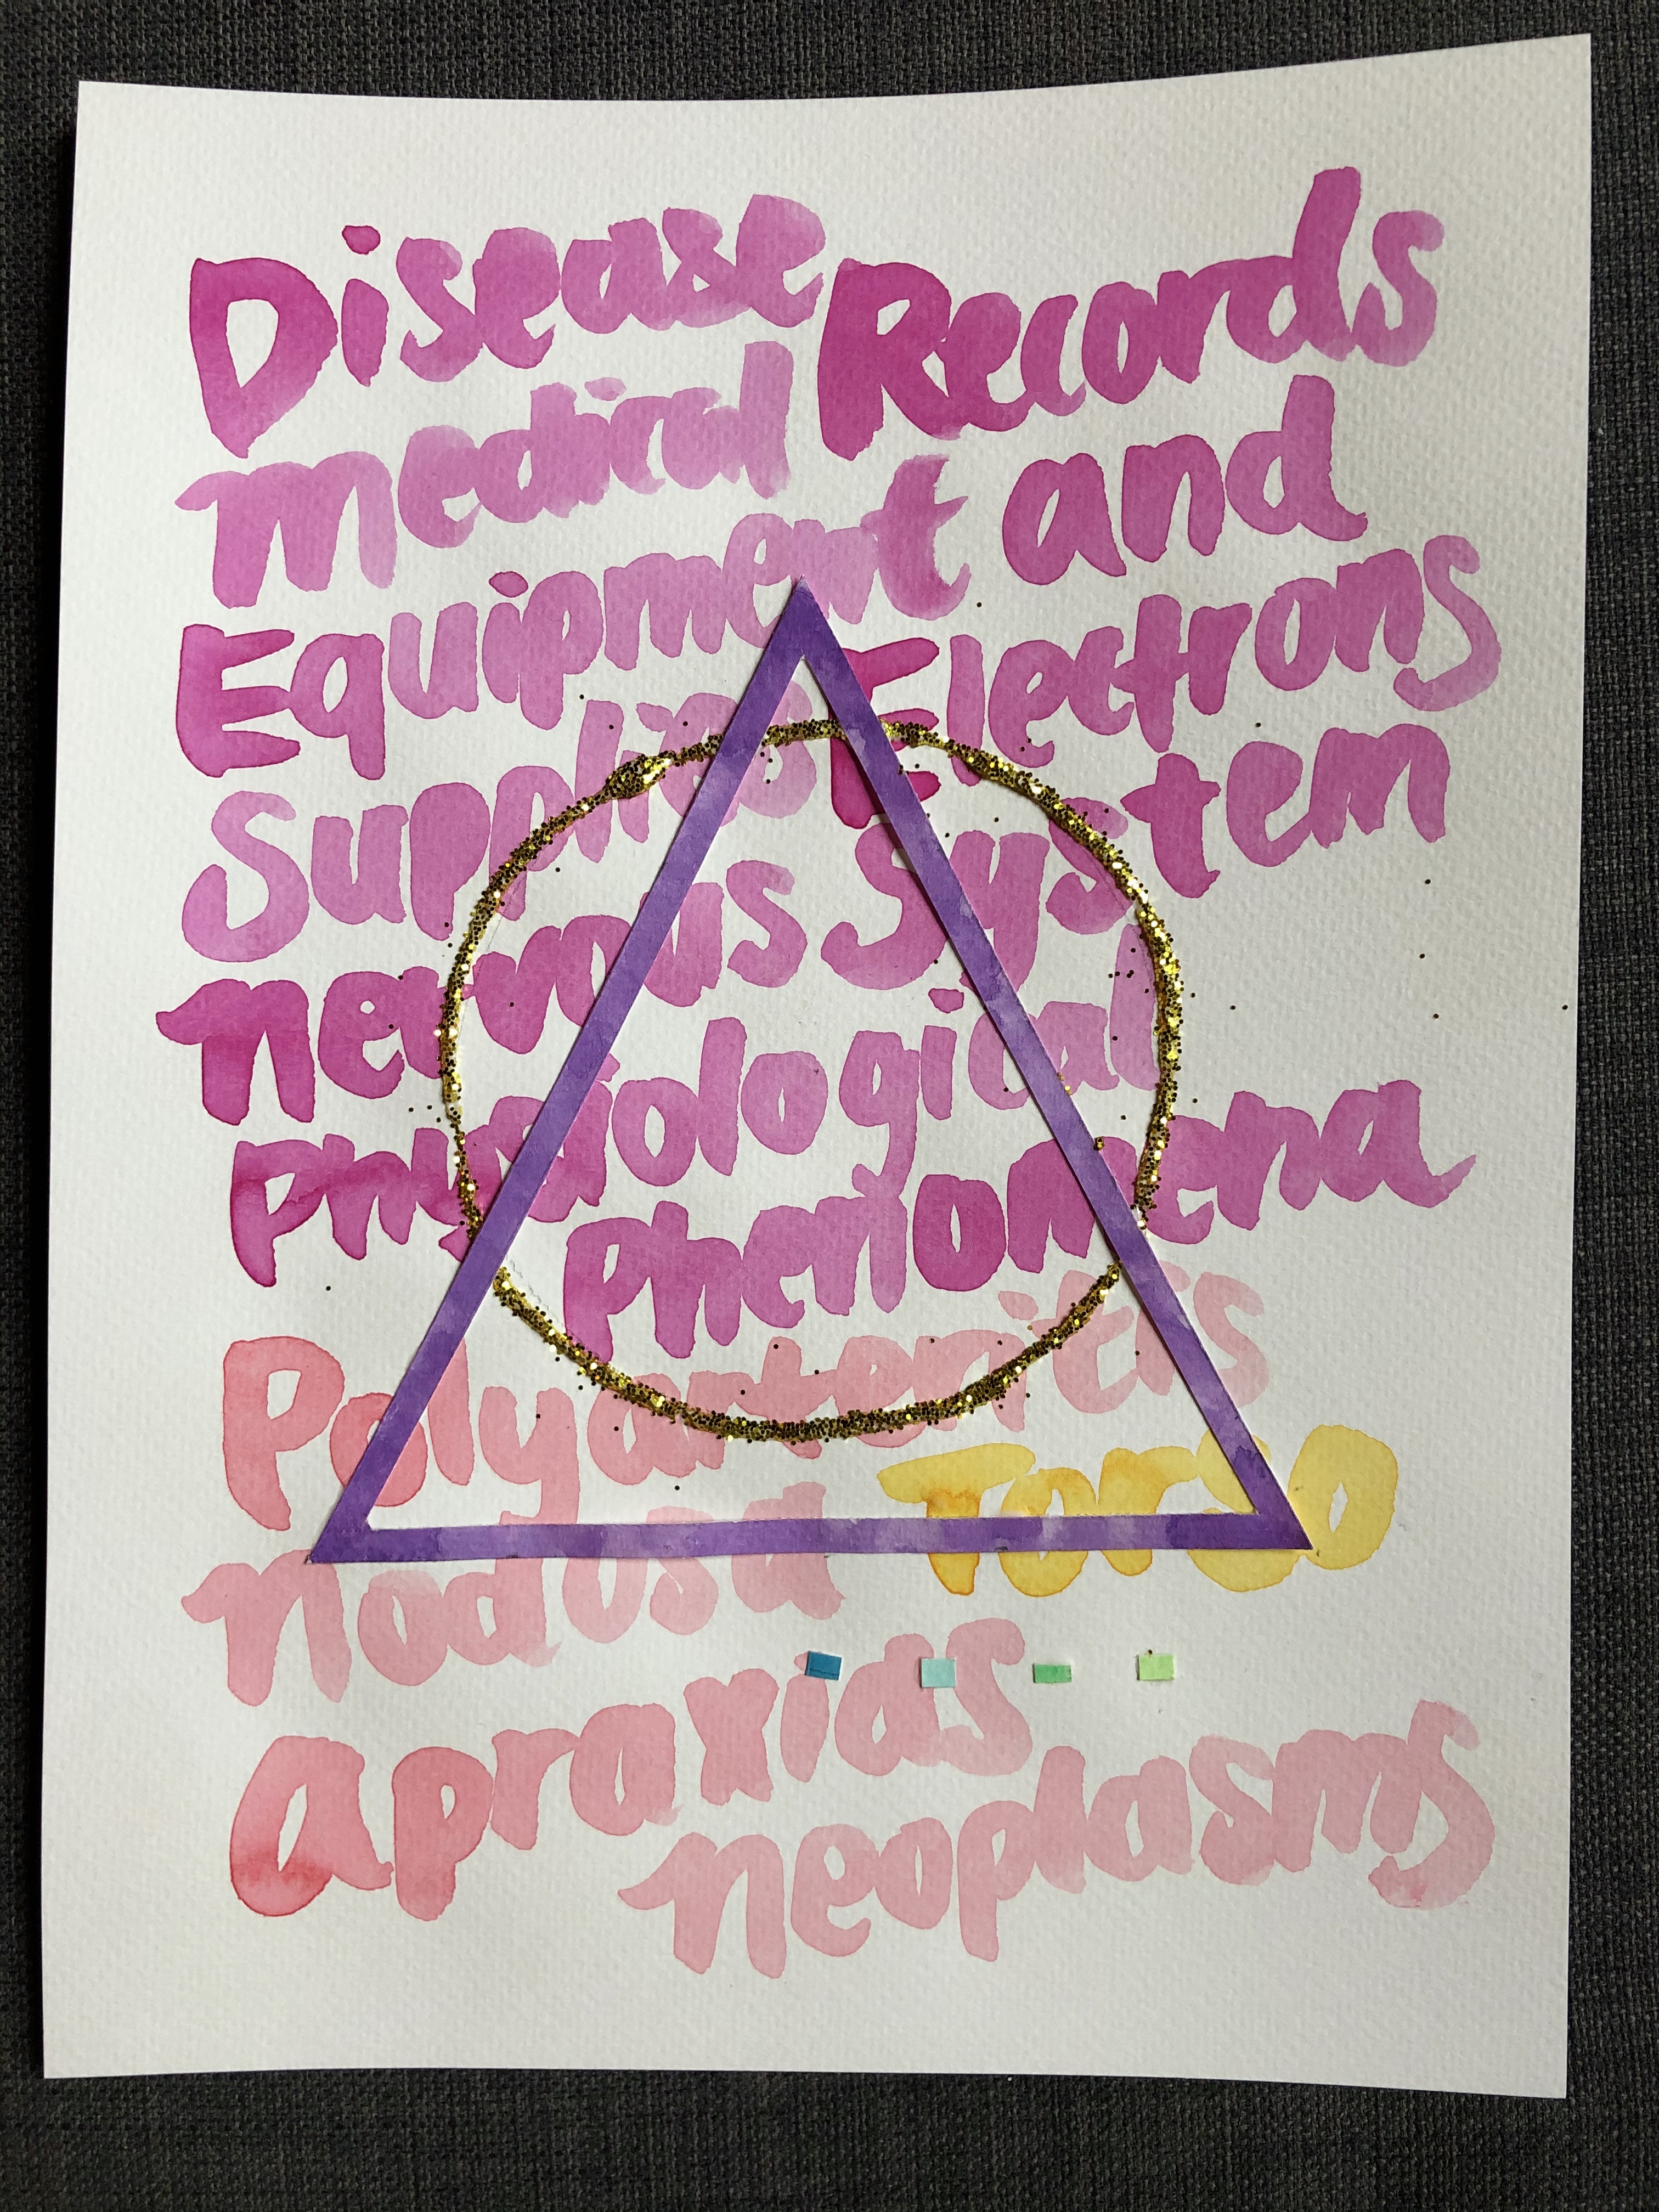 Disease Records
medical
Equipment and
Supplies Electrons
nervous System
Physiological
phenomena
Polyarteritis
Nodosa Torso
apraxias
neoplasms